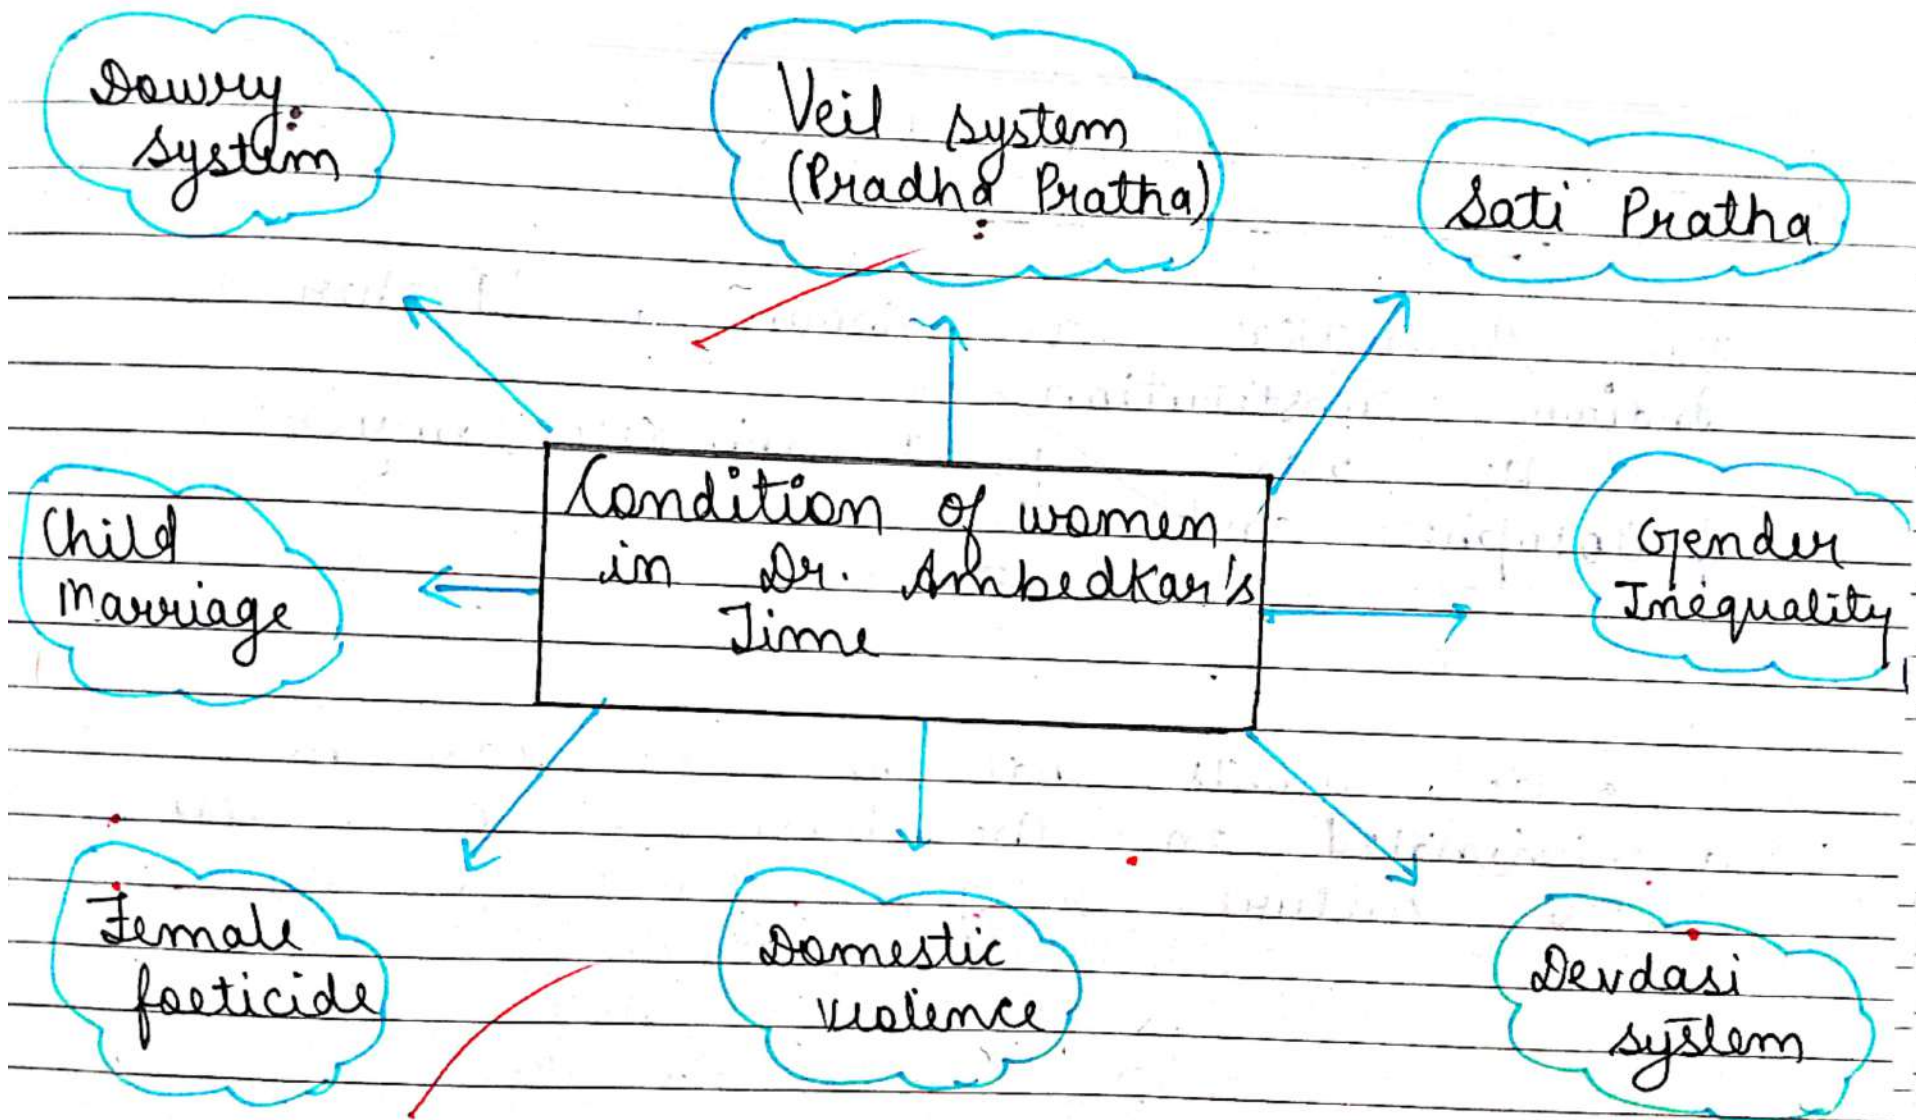 Dowry
system
Veil system
(Pradha Pratha)
Sati Pratha
Child
Marriage
Condition of women
in Dr. Ambedkar's
Time
Gender
Inequality
Female
foeticide
Domestic
violence
Devdasi
system